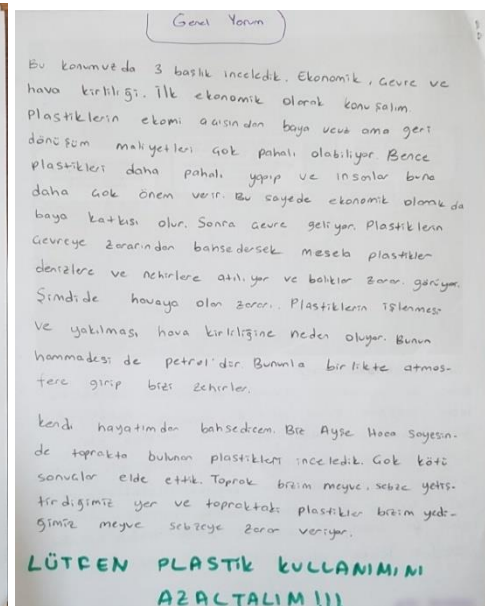 Genel Yorum
Bu konumuzda 3 başlık inceledik. Ekonomik, Çevre ve
hava kirliliği. İlk ekonomik olarak konuşalım.
Plastiklerin ekomi açısından baya ucuz ama geri
dönüşüm maliyetleri çok pahalı olabiliyor. Bence
plastikleri daha pahalı yapıp ve insanlar buna
daha çok önem verir. Bu sayede ekonomik olarak da
baya katkısı olur. Sonra çevre geliyor. Plastiklerin
Çevreye zararından bahsedersek mesela plastikler
denizlere ve nehirlere atılıyor ve balıklar zarar görüyor.
Şimdide havaya olan zararı. Plastiklerin işlenmesi
ve yakılması hava kirliliğine neden oluyor. Bunun
hammadesi de petrol'dür. Bununla birlikte atmos-
fere girip bizi zehirler.
Kendi hayatımdan bahsedicem. Biz Ayşe Hoca sayesin-
de toprakta bulunan plastikleri inceledik. Çok kötü
sonuçlar elde ettik. Toprak bizim meyve, sebze yetiş-
tirdiğimiz yer ve topraktaki plastikler bizim yedi-
ğimiz meyve sebzeye zarar veriyor.
LÜTFEN PLASTİK KULLANIMINI
AZALTALIM!!!